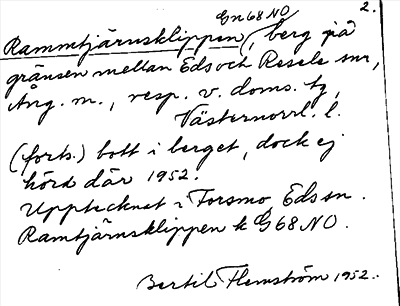 Gn 68 NO
2.
Rammtjärnsklippen, berg på
gränsen mellan Eds och Resele snr,
Ång. m., resp. v. doms. tg,
Västernorrl. l.
(forts.) bott i berget, dock ej
hörd där 1952.
Upptecknat i Forsmo, Eds sn.
Ramtjärnsklippen k G 68 NO.
Bertil Flemström 1952.